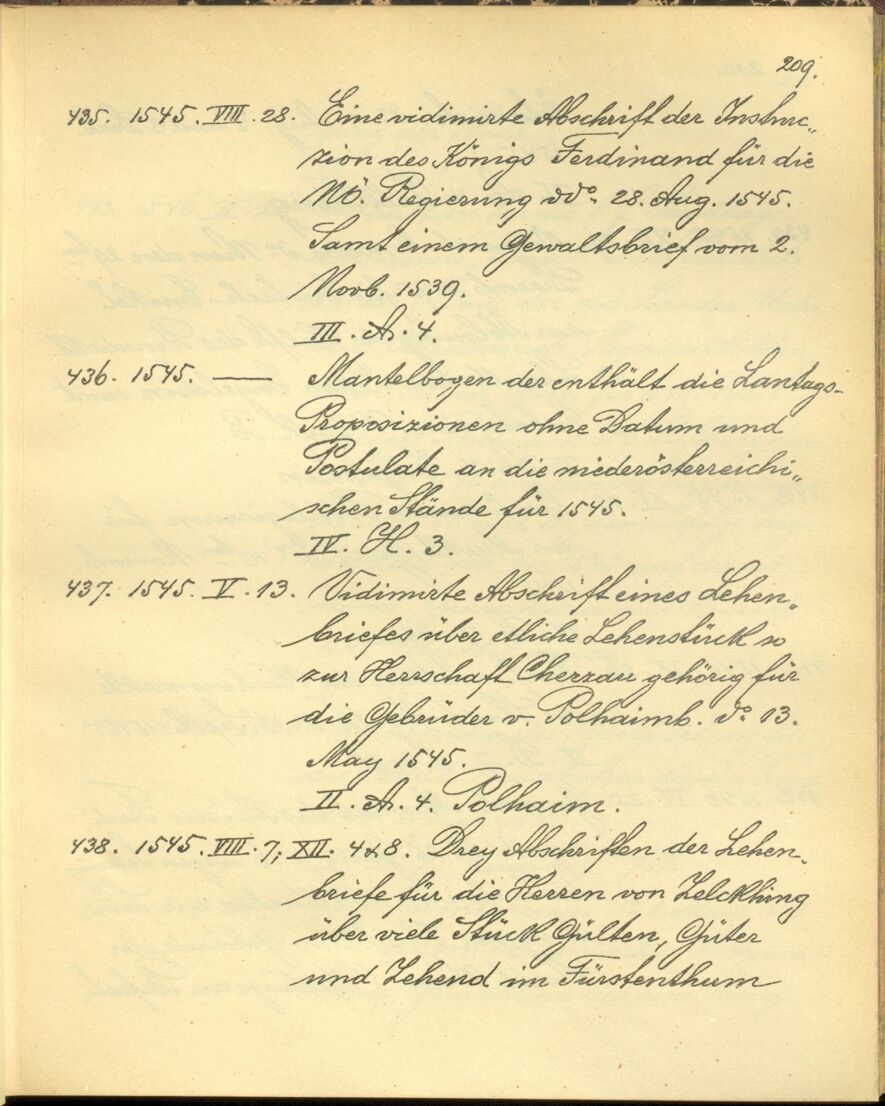 209.
435. 1545. VIII. 28. Eine vidimirte Abschrift der Instruc„
zion des Königs Ferdinand für die
NÖ. Regierung ddo. 28. Aug. 1545.
Samt einem Gewaltsbrief vom 2.
Novb. 1539.
III. A. 4.
436. 1545. — Mantelbogen der enthält die Lantags-
Proposizionen ohne Datum und
Postulate an die niederösterreichi„
schen Stände für 1545.
IV. H. 3.
437. 1545. V. 13. Vidimirte Abschrift eines Lehen„
briefes über etliche Lehenstück so
zur Herrschaft Cherzau gehörig für
die Gebrüder v. Polhaimb. do. 13.
May 1545.
II. A. 4. Polhaim.
438. 1545. VIII. 7; XII. 4 & 8. Drey Abschriften der Lehen„
briefe für die Herren von Zelckhing
über viele Stück Gülten, Güter
und Zehend im Fürstenthum